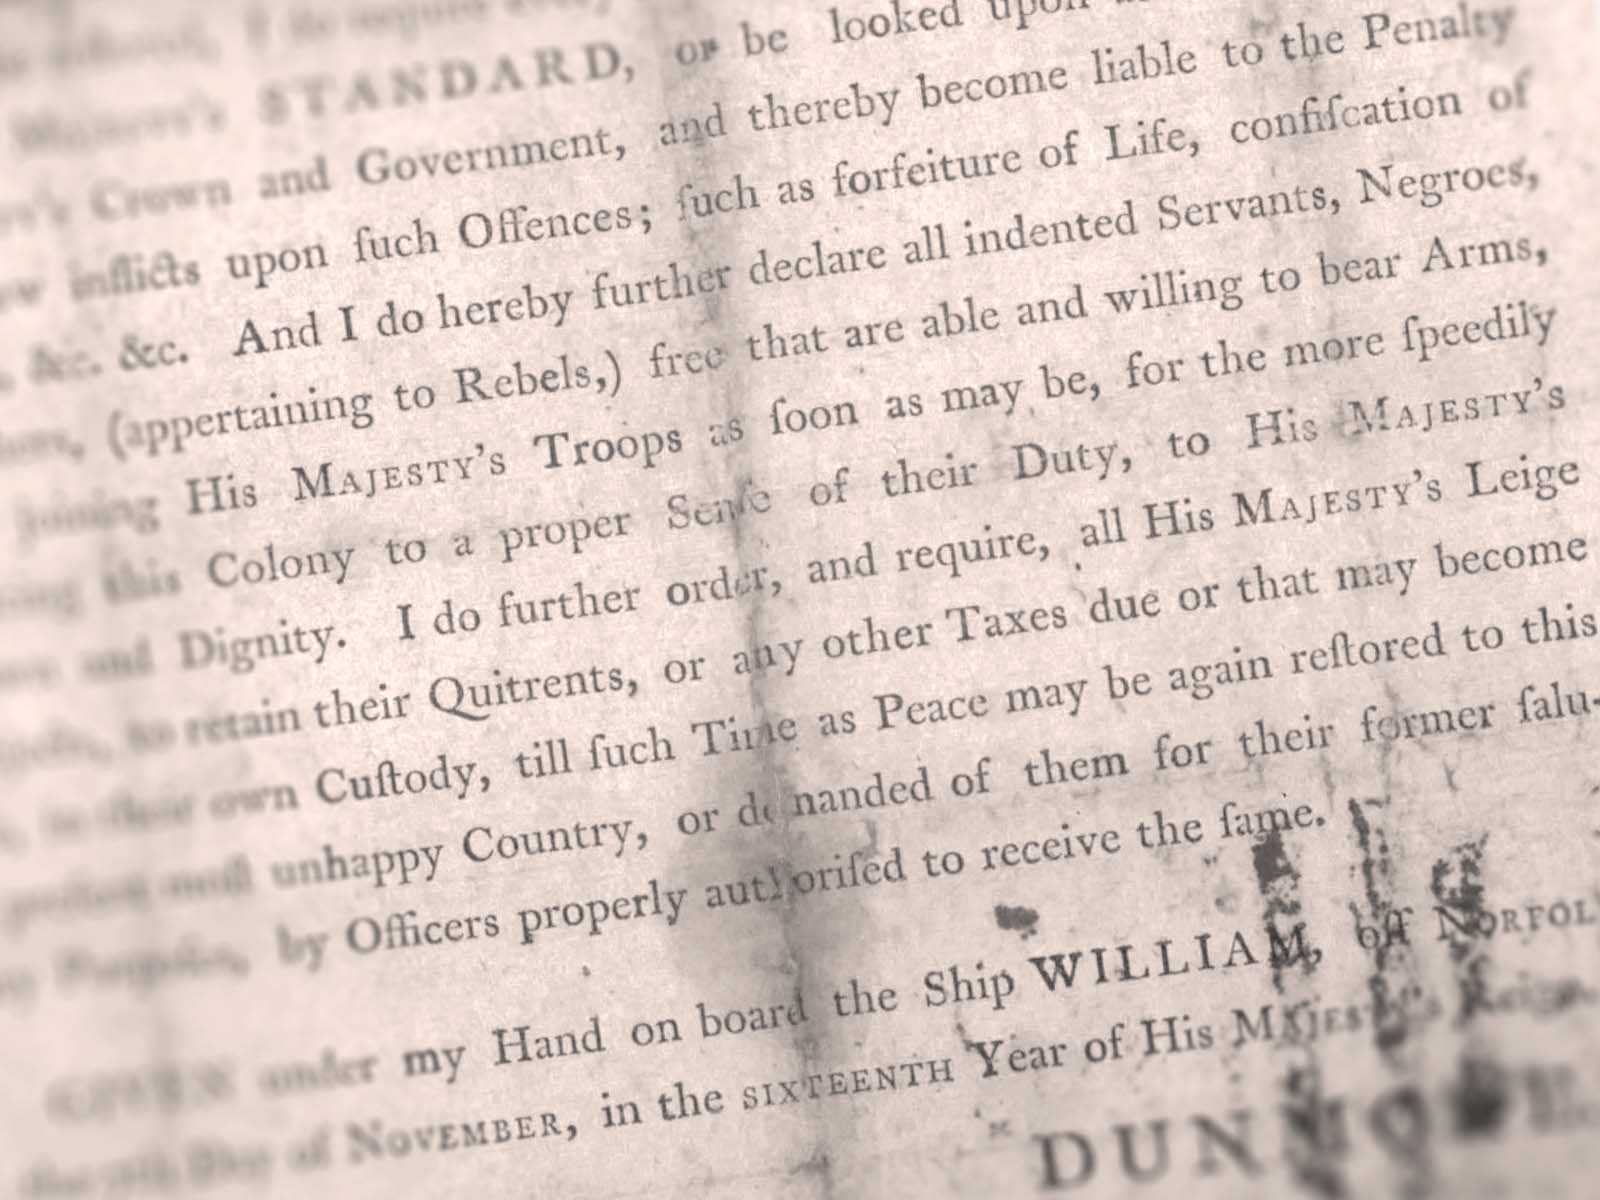 STANDARD, or be looked upon
Crown and Government, and thereby become liable to the Penalty
inflicts upon ſuch Offences; ſuch as forfeiture of Life, confiſcation of
&c. &c. And I do hereby further declare all indented Servants, Negroes,
(appertaining to Rebels,) free that are able and willing to bear Arms,
joining His MAJESTY'S Troops as ſoon as may be, for the more ſpeedily
this Colony to a proper Senſe of their Duty, to His MAJESTY'S
and Dignity. I do further order, and require, all His MAJESTY'S Leige
to retain their Quitrents, or any other Taxes due or that may become
in their own Cuſtody, till ſuch Time as Peace may be again reſtored to this
moſt unhappy Country, or demanded of them for their former ſalu-
by Officers properly authoriſed to receive the ſame.
GIVEN under my Hand on board the Ship WILLIAM, off NORFOL
Day of NOVEMBER, in the SIXTEENTH Year of His MAJESTY'S Reign.
DUNMORE